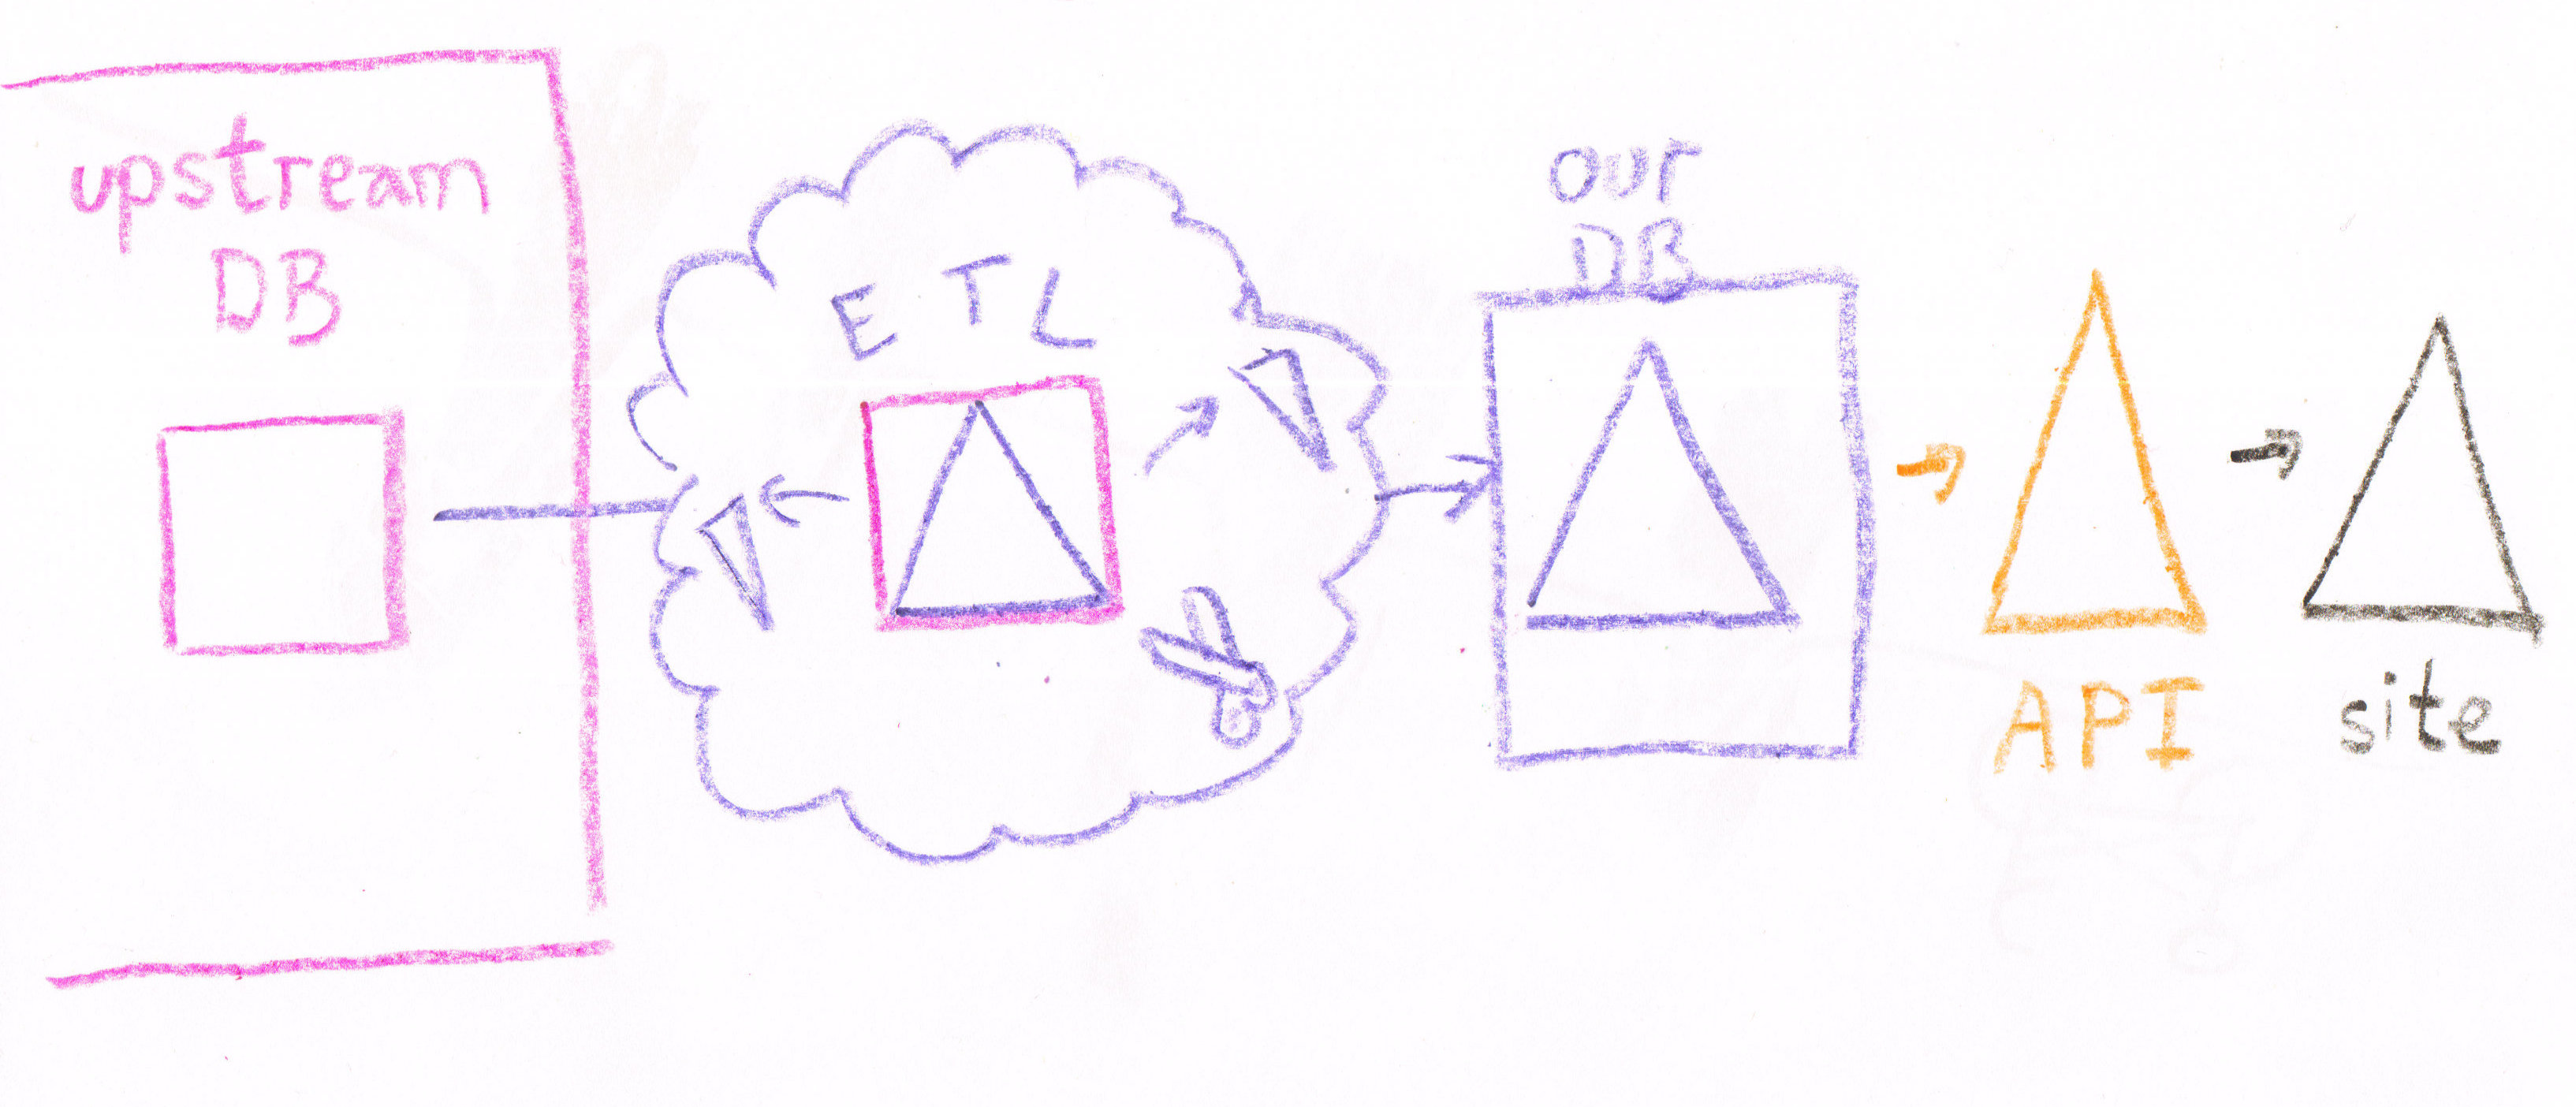 upstream
DB
ETL
our
DB
API
site